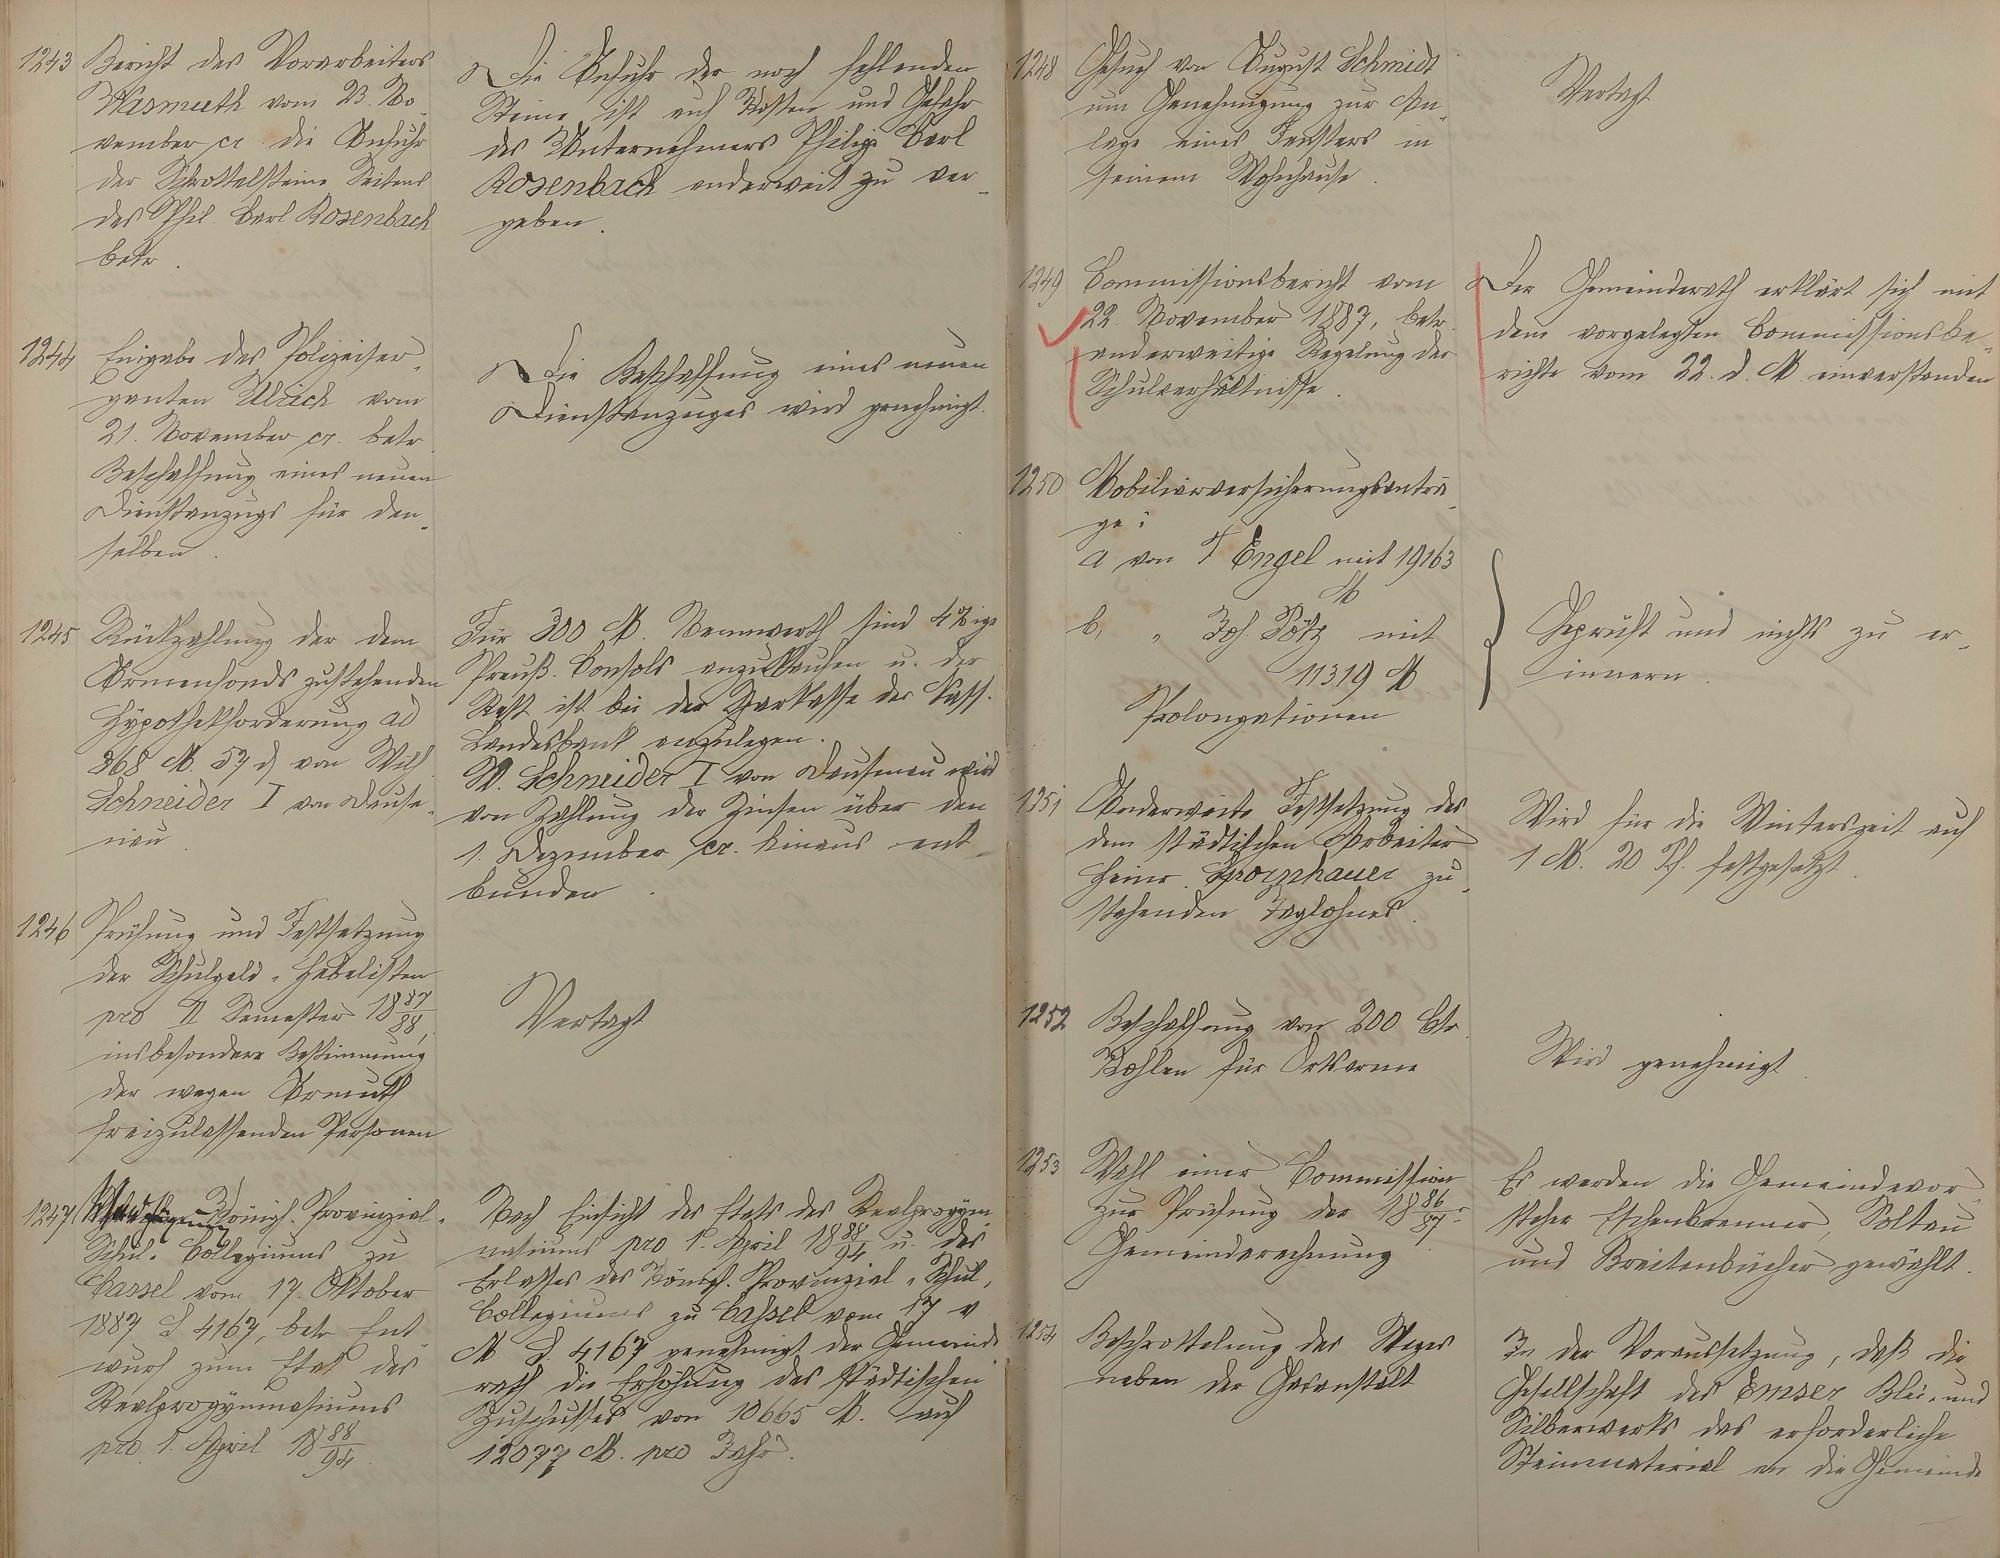 1243
Bericht des Vorarbeiters
Wasmuth vom 23. No-
vember cr. die Anfuhr
der Schrottelsteine Seitens
des Phil. Carl Rosenbach
betr.
Die Anfuhr der noch fehlenden
Steine ist auf Kosten und Gefahr
des Unternehmers Philipp Carl
Rosenbach anderweit zu ver-
geben.
1244
Eingabe des Polizeiser-
genten Ulrich vom
21. November cr. betr.
Beschaffung eines neuen
Dienstanzugs für den-
selben.
Die Beschaffung eines neuen
Dienstanzuges wird genehmigt.
1245
Rückzahlung der dem
Armenfonds zustehenden
Hypothekforderung ad
368 M. 57 d von Wilh.
Schneider I von Dause-
nau.
Für 300 M. Nennwerth sind 4%ige
Preuß. Consols anzukaufen u. der
Rest ist bei der Sparkasse der Nass.
Landesbank anzulegen.
W. Schneider I von Dausenau wird
von Zahlung der Zinsen über den
1. Dezember cr. hinaus ent-
bunden.
1246
Prüfung und Festsetzung
der Schulgeld-Hebelisten
pro II Semester 1887/88,
insbesondere Bestimmung
der wegen Armuth
freizulassenden Personen
Vertagt
1247
Königl. Provinzial-
Schul-Collegiums zu
Cassel vom 17. Oktober
1887 S. 4167, betr. Ent-
wurf zum Etat des
Realprogymnasiums
pro 1. April 1888/94.
Nach Einsicht des Etats des Realprogym-
nasiums pro 1. April 1888/94 u. des
Erlasses des Königl. Provinzial-Schul-
Collegiums zu Cassel vom 17 v.
M S. 4167 genehmigt der Gemeinde-
rath die Erhöhung des städtischen
Zuschusses von 10665 M. auf
12077 M. pro Jahr.
1248
Gesuch von August Schmidt
um Genehmigung zur An-
lage eines Fensters in
seinem Wohnhause.
Vertagt
1249
Commissionsbericht vom
22. November 1887, betr.
anderweitige Regelung der
Schulverhältnisse.
Der Gemeinderath erklärt sich mit
dem vorgelegten Commissionsbe-
richte vom 22. d. M. einverstanden
1250
Mobiliarversicherungsanträ-
ge:
a von F Engel mit 19163
M
b, " Joh. Pötz mit
11319 M.
Prolongationen
Geprüft und nichts zu er-
innern.
1251
Anderweite Festsetzung des
dem städtischen Arbeiter
Heinr. zu-
stehenden Taglohnes.
Wird für die Winterszeit auf
1 M. 20 Pf. festgesetzt.
1252
Beschaffung von 200 Ctr.
Kohlen für Ortsarme
Wird genehmigt.
1253
Wahl einer Commission
zur Prüfung der 1886/87er
Gemeinderechnung
Es werden die Gemeindevor-
steher Eschenbrenner, Soltau
und Breitenbücher gewählt.
1254
Beschrottelung des Weges
neben der Gasanstalt
In der Voraussetzung, daß die
Gesellschaft des Emser Blei- und
Silberwerks das erforderliche
Steinmaterial an die Gemeinde